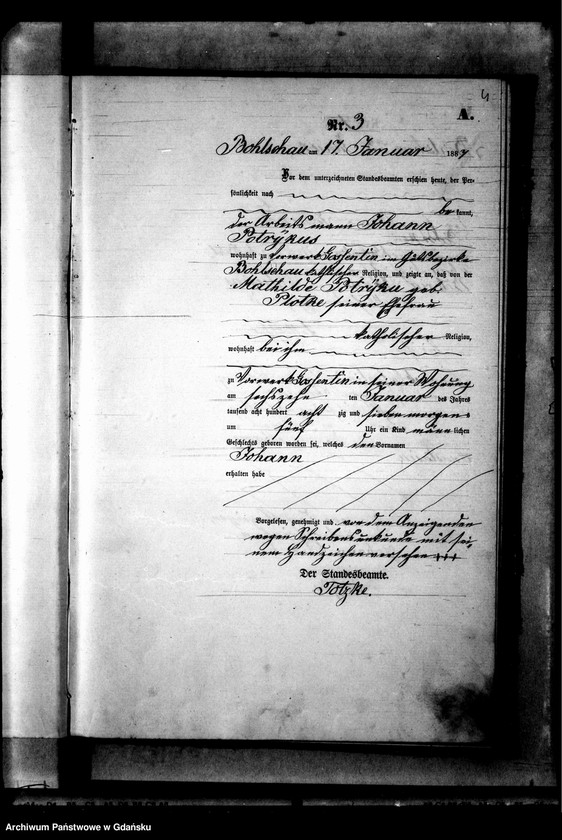 4
A.
Nr. 3
Bohlschau am 17. Januar 1887
Vor dem unterzeichneten Standesbeamten erschien heute, der Per-
sönlichkeit nach
be kannt,
der Arbeitsmann Johann
Potrÿkus
wohnhaft zu Vorwerk Gossentin im Gutsbezirke
Bohlschau katholischer Religion, und zeigte an, daß von der
Mathilde Potrÿku geb.
Plotke seiner Ehefrau
katholischer Religion,
wohnhaft bei ihm
zu Vorwerk Gossentin in seiner Wohnung
am sechszehn ten Januar des Jahres
tausend acht hundert acht zig und sieben morgens
um fünf Uhr ein Kind männ lichen
Geschlechts geboren worden sei, welches den Vornamen
Johann
erhalten habe
Vorgelesen, genehmigt und von dem Anzeigenden
wegen Schreibensunkunde mit sei-
nem Handzeichen versehen +++
Der Standesbeamte.
Totzke.
Archiwum Państwowe w Gdańsku